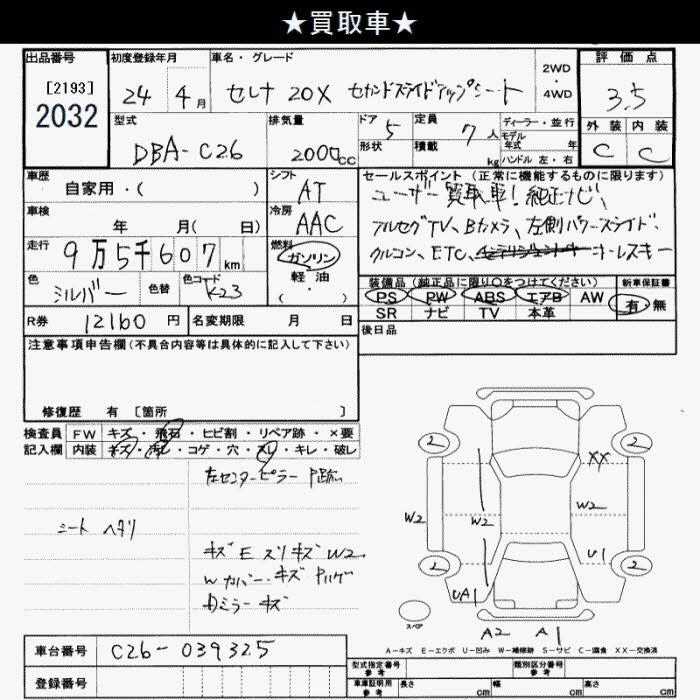 ★買取車★
出品番号
[2193]
2032
初度登録年月
24年4月
車名・グレード
セレナ 20X セカンドスライドアップシート
2WD
・
4WD
評価点
3.5
外装 内装
C C
型式
DBA-C26
排気量
2000cc
ドア 5
形状
定員 7人
積載 kg
ディーラー・並行
モデル
年式 年
ハンドル 左・右
車歴
自家用・( )
シフト
AT
車検
年 月( 日)
冷房
AAC
走行
9万5千607km
燃料
ガソリン
軽・油
・
( )
色
シルバー
色替
色コード
K23
セールスポイント (正常に機能するものに限ります)
ユーザー買取車!純正ナビ、
フルセグTV、Bカメラ、左側パワースライド、
クルコン、ETC、キーレスキー
装備品 (純正品に限り○をつけてください)
新車保証書
PS PW ABS エアB AW
SR ナビ TV 本革
有・無
R券 12160円
名変期限 月 日
後日品
注意事項申告欄(不具合内容等は具体的に記入して下さい)
修復歴 有 [箇所 ]
検査員
記入欄
FW キズ・飛石・ヒビ割・リペア跡・×要
内装 キズ・汚レ・コゲ・穴・スレ・キレ・破レ
左センターピラー P跡
シート ヘタリ
キズ E スリキズ W2
Wカバー・キズ Pハゲ
Dミラーキズ
2 2
XX
W2 W2 W2
U1
2 2
UA1
スペア
A2 A1
A-キズ E-エクボ U-凹み W-補修跡 S-サビ C-腐食 XX-交換済
車台番号 C26-039325
登録番号
型式指定番号
参考
類別区分番号
参考
車庫証明用
参考
長さ cm
幅 cm
高さ cm